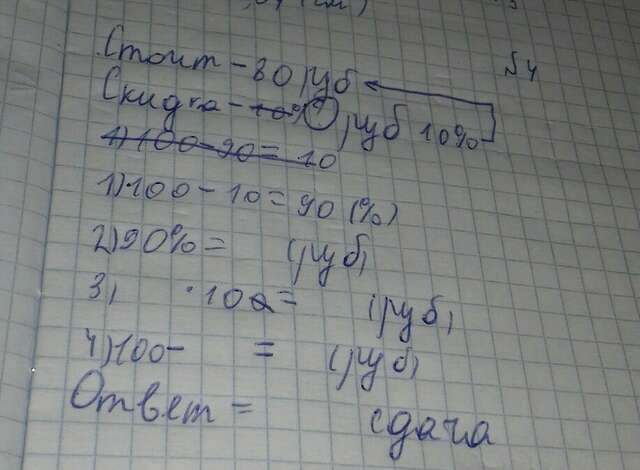 №4
Стоит - 80 руб
Скидка - 10% руб 10%
1) 100 - 90 = 10
1) 100 - 10 = 90 (%)
2) 90% = (руб)
3) · 100 = (руб)
4) 100 - = (руб)
Ответ = сдача